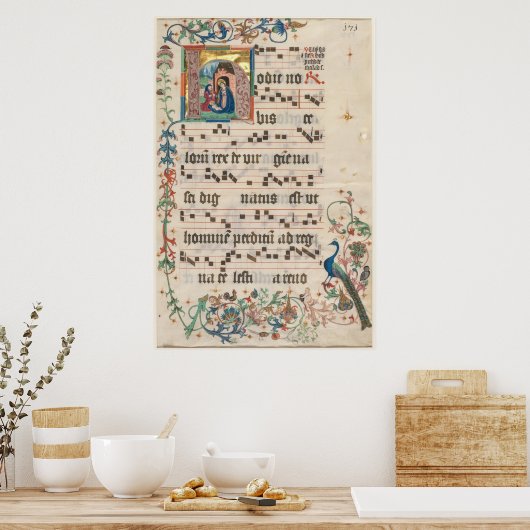 171
odie no
bis ce
lorum rex de vir gie na
sci dig natus est ut
homine perditu ad reg
na ce lesti a revo